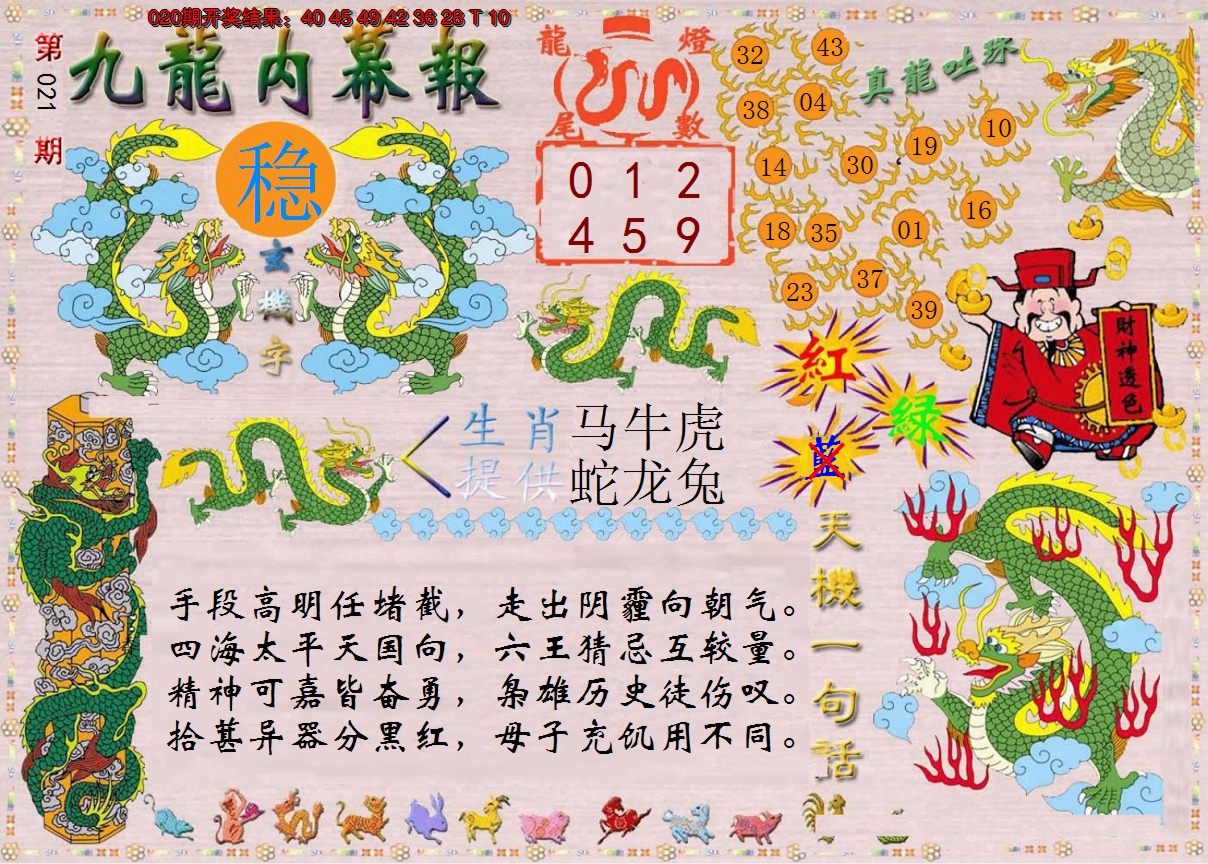 020期开奖结果：40 45 49 42 36 28 T 10
第021期
九龍内幕報
稳
玄機字
龍燈
尾數
0 1 2
4 5 9
真龍吐珠
32 43
38 04
19 10
14 30
16
18 35 01
37
23 39
紅
綠
藍
財神透色
生肖 马牛虎
提供 蛇龙兔
天機一句話
手段高明任堵截，走出阴霾向朝气。
四海太平天国向，六王猜忌互较量。
精神可嘉皆奋勇，枭雄历史徒伤叹。
拾甚异器分黑红，母子充饥用不同。